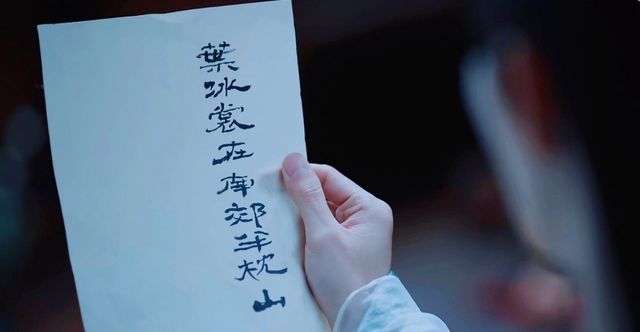 葉冰裳在南郊牛枕山